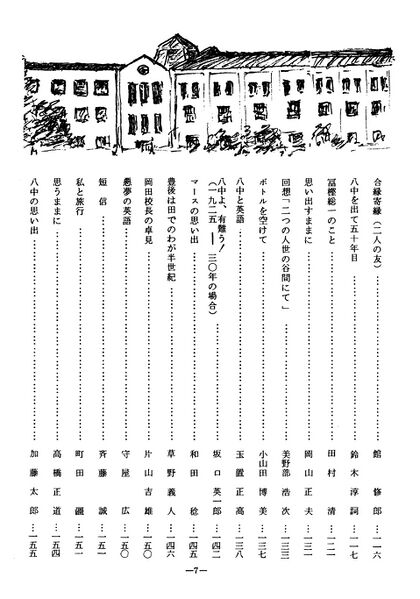 合縁寄縁(二人の友)……………………館 修郎…一一六
八中を出て五十年目……………………鈴木淳詞…一一七
冨樫総一のこと……………………田村 清…一二一
思い出すままに……………………岡山正夫…一三一
回想「二つの人世の谷間にて」……………………美野部浩次…一三三
ボトルを空けて……………………小山田博美…一三七
八中と英語……………………玉置正高…一三八
八中よ、有難う!(一九二五—三〇年の場合)……………………坂口英一郎…一四二
マースの思い出……………………和田 稔…一四四
豊後は田でのわが半世紀……………………草野義人…一四六
岡田校長の卓見……………………片山吉雄…一五〇
悪夢の英語……………………守屋 広…一五〇
短信……………………斉藤 誠…一五一
私と旅行……………………町田 彊…一五一
思うままに……………………高橋正道…一五四
八中の思い出……………………加藤太郎…一五五
—7—